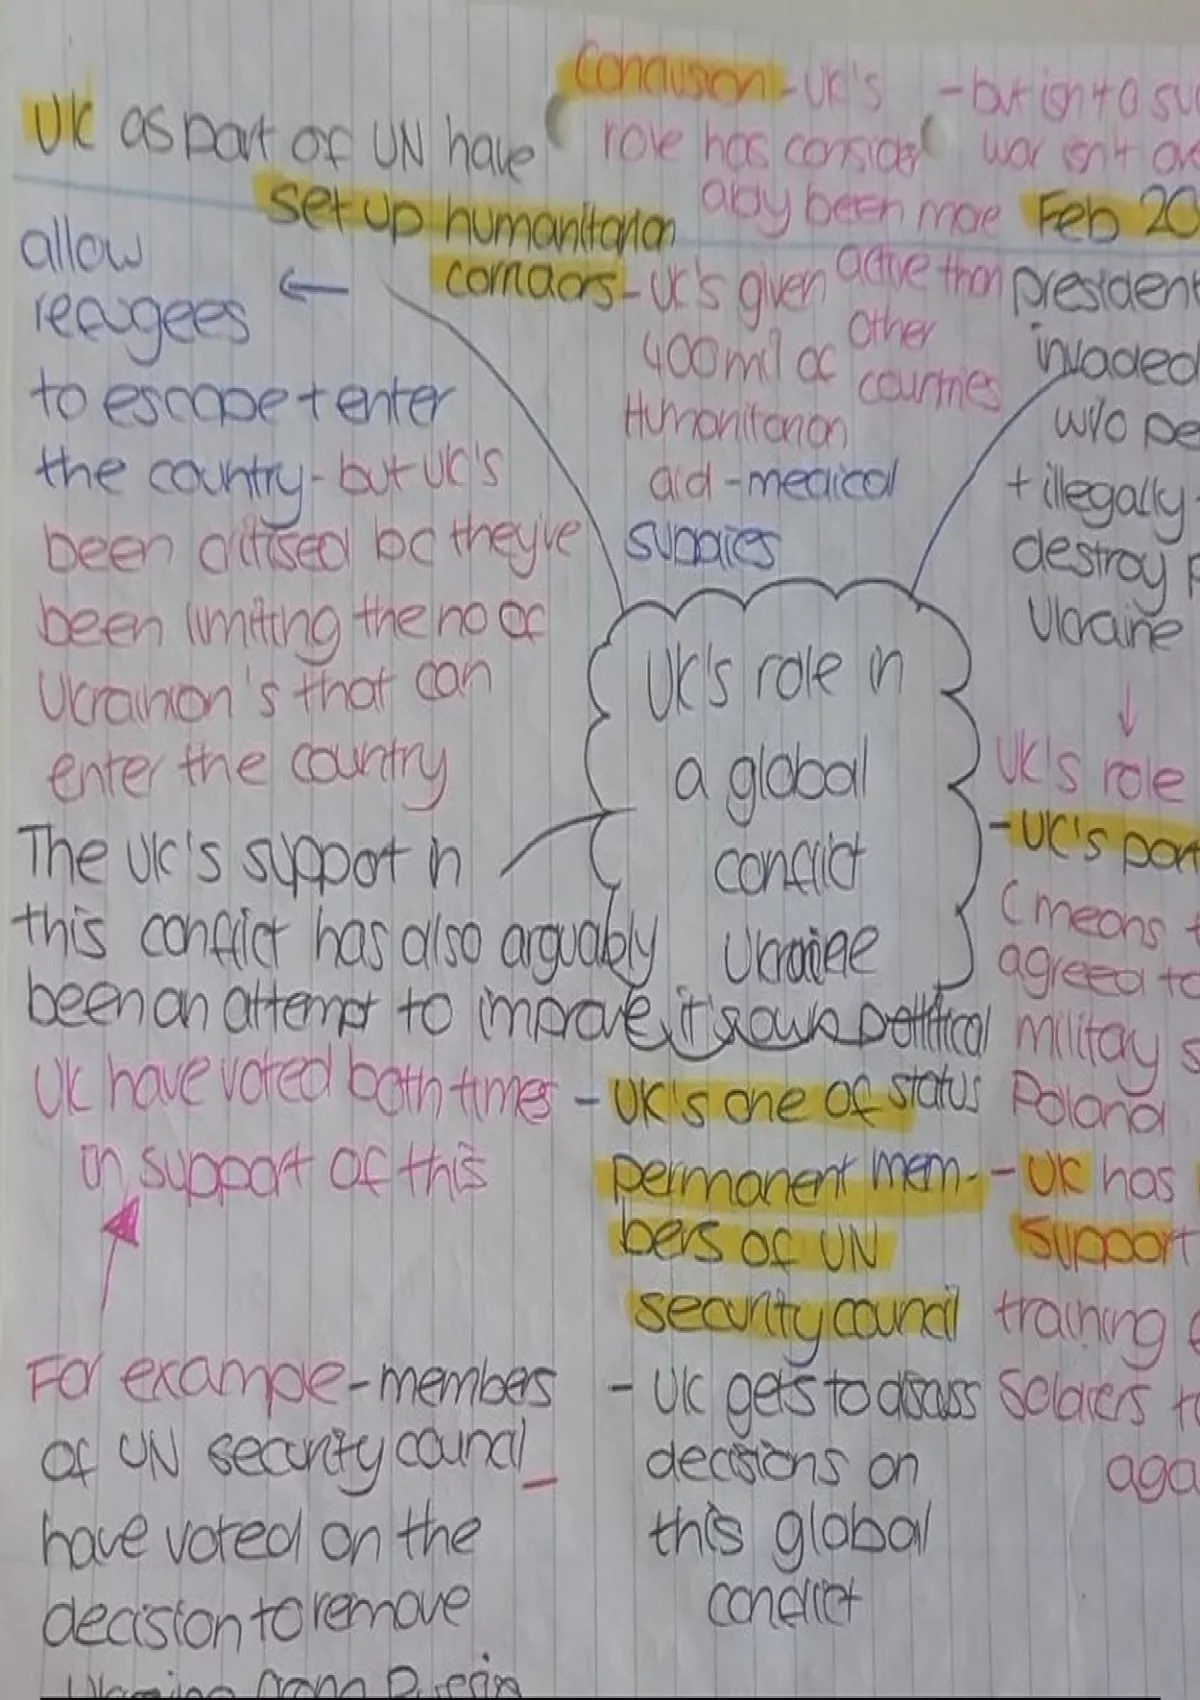 UK as part of UN have
set up humanitarian
corridors - UK's given
400 mil of
Humanitarian
aid - medical
supplies
←
allow
refugees
to escape + enter
the country - but UK's
been critised bc they've
been limiting the no of
Ukrainian's that can
enter the country
Conclusion - UK's
role has consider
ably been more
active than
other
countries
- but isn't a
war isn't
Feb 20
president
invaded
w/o
+ illegally
destroy
Ukraine
↓
UK's role in
a global
conflict
Ukraine
UK's role
- UK's
(means
agreed to
military
Poland
- UK has
support
training
soldiers
The UK's support in
this conflict has also arguably
been an attempt to improve it's own political
status
- UK's one of
permanent mem-
bers of UN
security council
- UK gets to discuss
decisions on
this global
conflict
UK have voted both times
in support of this
For example - members
of UN security council
have voted on the
decision to remove
Ukraine from Russia